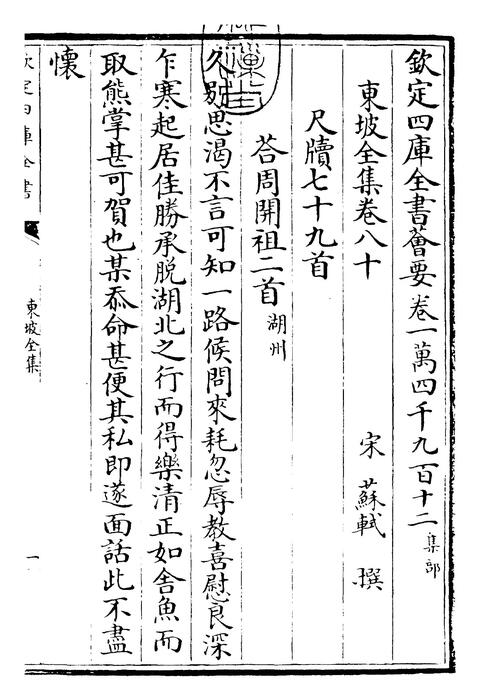 欽定四庫全書薈要卷一萬四千九百十二集部
東坡全集卷八十
宋 蘇軾 撰
尺牘七十九首
荅周開祖二首湖州
久別思渴不言可知一路候問來耗忽辱教喜慰良深
乍寒起居佳勝承脫湖北之行而得樂清正如舍魚而
取熊掌甚可賀也某忝命甚便其私即遂面話此不盡
懷
欽定四庫全書
東坡全集
一